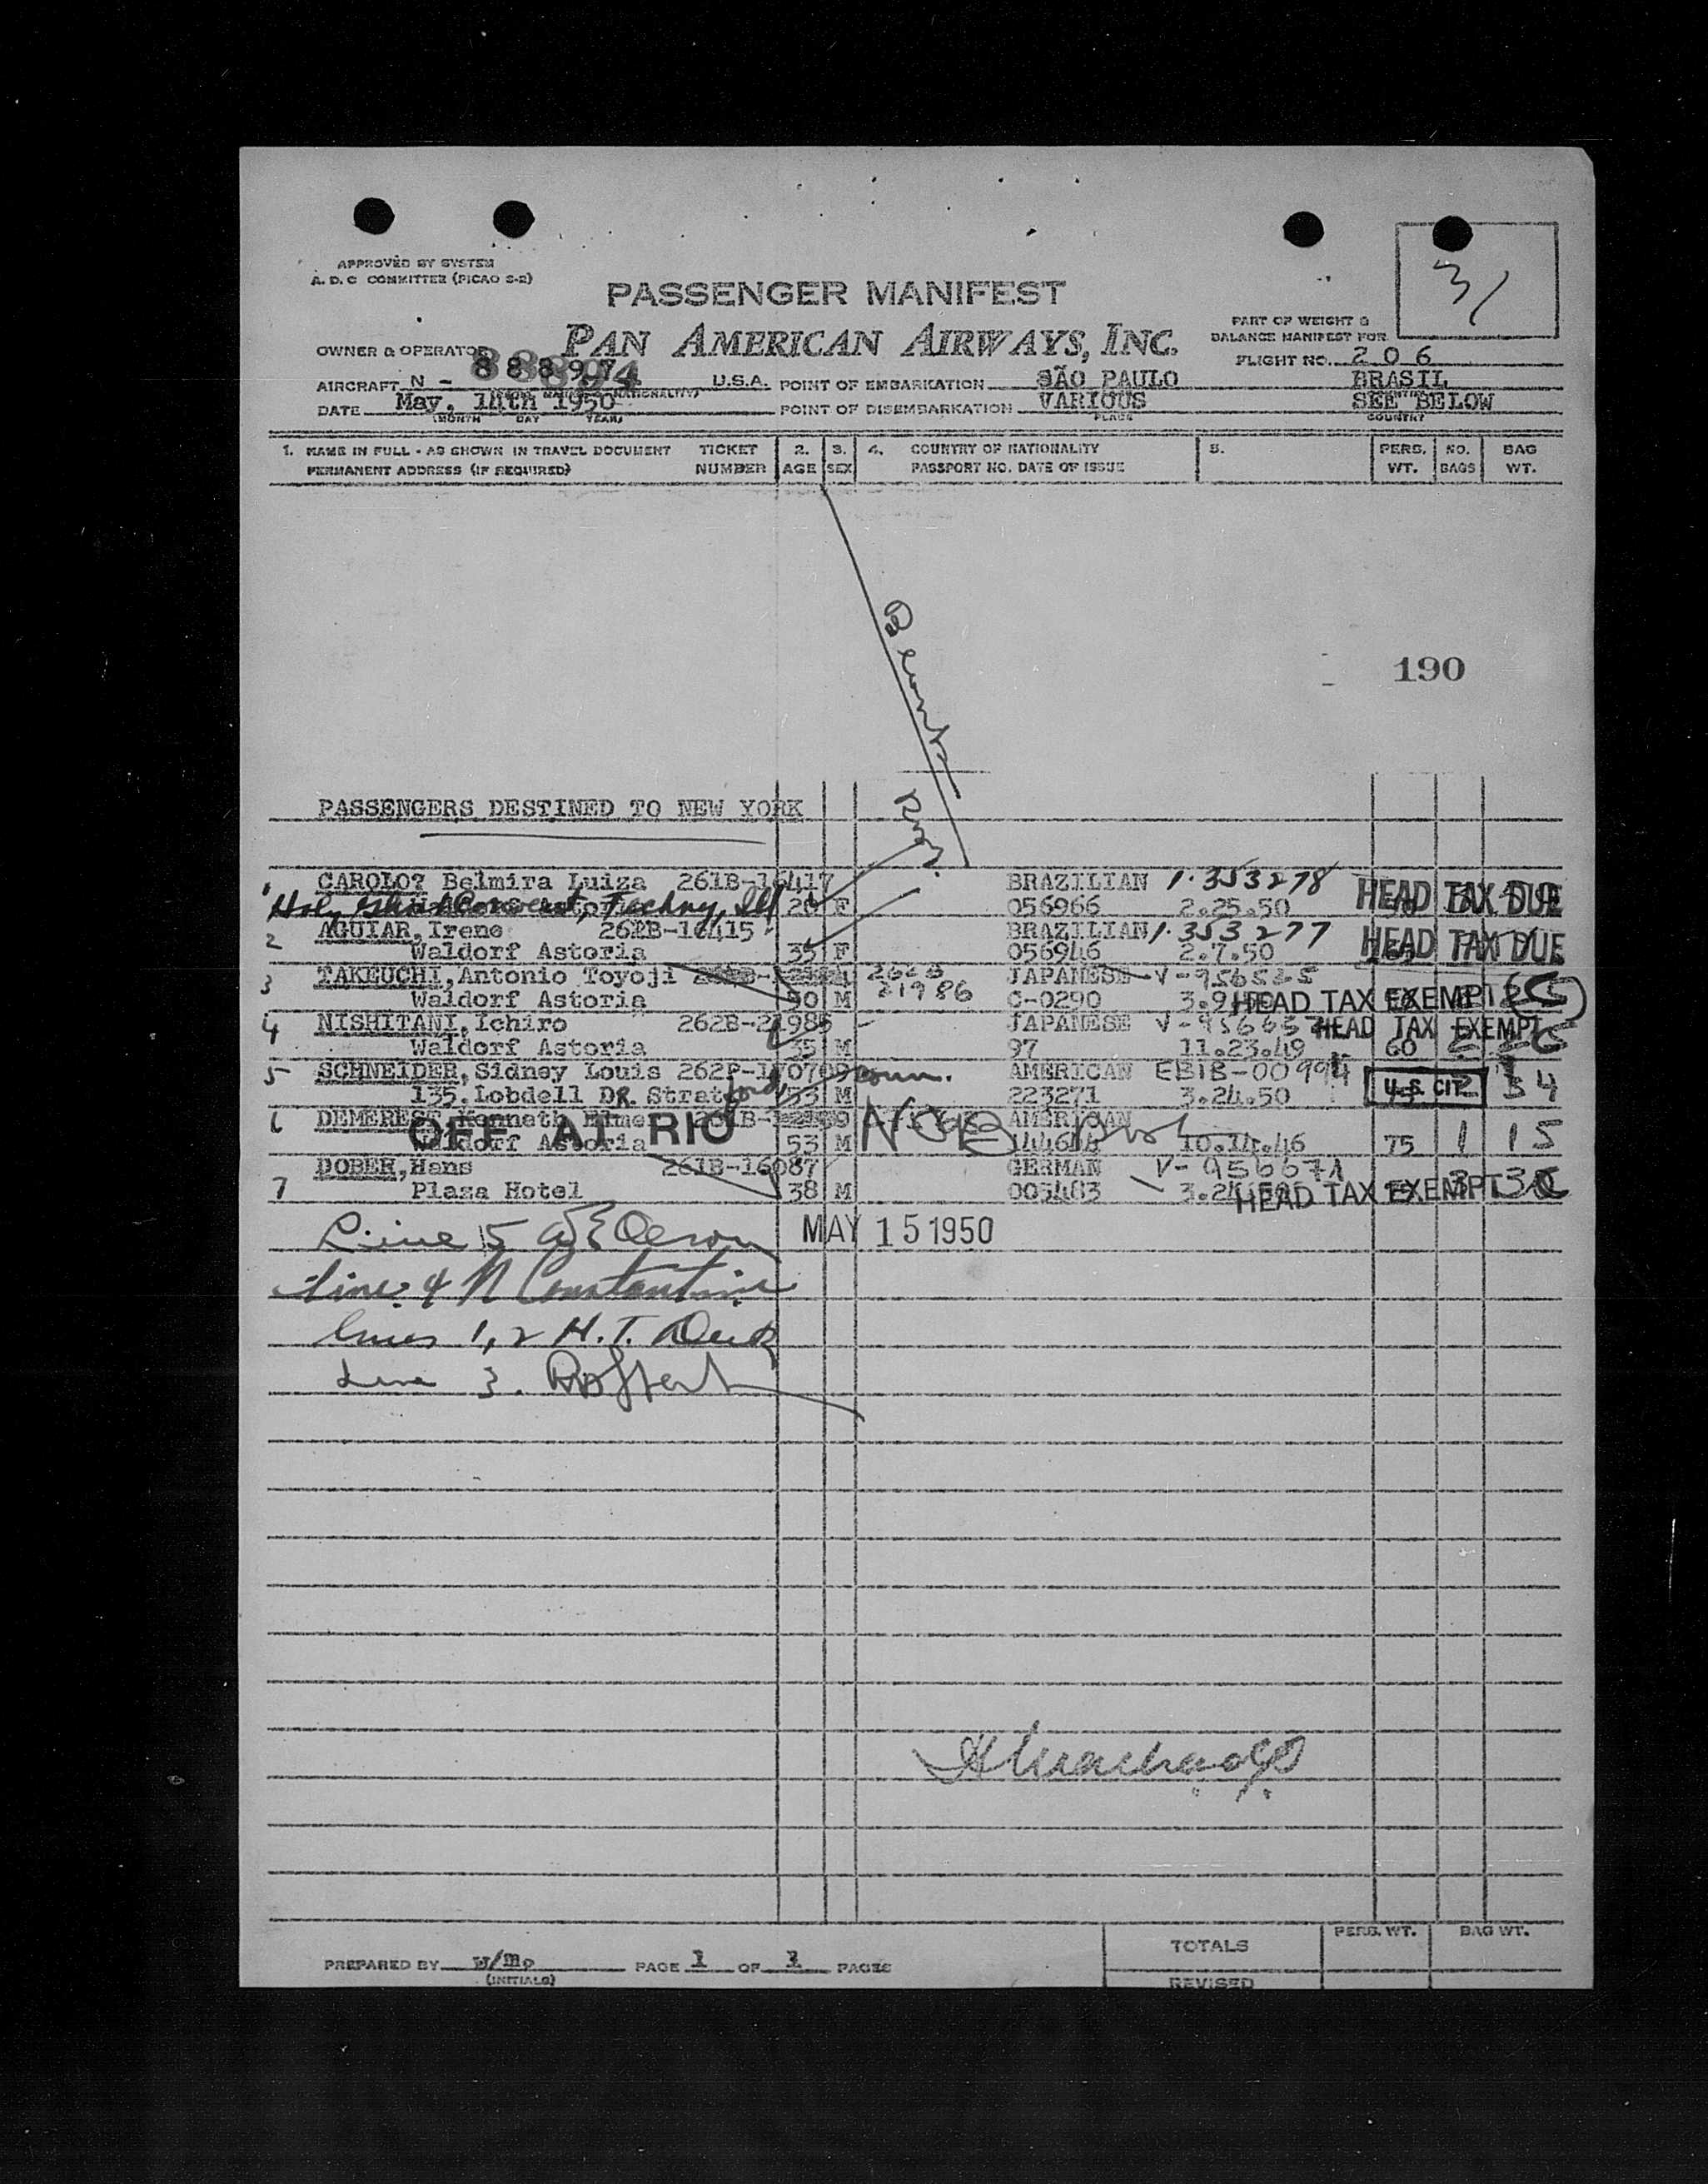 31
APPROVED BY SYSTEM
A. D. C COMMITTEE (PICAO S-2)
PASSENGER MANIFEST
PAN AMERICAN AIRWAYS, INC.
PART OF WEIGHT &
BALANCE MANIFEST FOR
OWNER & OPERATOR
FLIGHT NO. 206
AIRCRAFT N - U.S.A. POINT OF EMBARKATION SÃO PAULO BRASIL
DATE May, 14th 1950 POINT OF DISEMBARKATION VARIOUS SEE BELOW
(MONTH DAY YEAR) PLACE COUNTRY
1. NAME IN FULL - AS SHOWN IN TRAVEL DOCUMENT TICKET 2. 3. 4. COUNTRY OF NATIONALITY 5. PERS. NO. BAG
PERMANENT ADDRESS (IF REQUIRED) NUMBER AGE SEX PASSPORT NO. DATE OF ISSUE WT. BAGS WT.
190
PASSENGERS DESTINED TO NEW YORK
1 CAROLO? Belmira Luiza 261B-16417 BRAZILIAN 1.353278
Holy Ghost Convent, Techny, Ill F 056966 2.25.50 HEAD TAX DUE
2 AGUIAR, Irene 261B-16415 BRAZILIAN 1.353277
Waldorf Astoria 35 F 056946 2.7.50 HEAD TAX DUE
3 TAKEUCHI, Antonio Toyoji 262B 21986 JAPANESE V-956535
Waldorf Astoria M C-0290 HEAD TAX EXEMPT
4 NISHITANI, Ichiro 262B-21985 JAPANESE HEAD TAX EXEMPT
Waldorf Astoria 35 M 97 11.23.49 60
5 SCHNEIDER, Sidney Louis Conn. AMERICAN EBIB-00994
135.Lobdell DR. Stratford 53 M 223271 3.24.50 U.S. CIT 34
6 DEMEREST, Kenneth AMERICAN
OFF AT RIO
Waldorf Astoria 53 M 10.14.46 75 1 15
DOBER, Hans 261B-16087 GERMAN V-956671
7 Plaza Hotel 38 M 005483 HEAD TAX EXEMPT
Line 5 MAY 15 1950
Line 4 N Constantine
Lines 1, 2 H. T.
Line 3.
PREPARED BY PAGE 1 OF PAGES TOTALS PERS. WT. BAG WT.
(INITIALS) REVISED